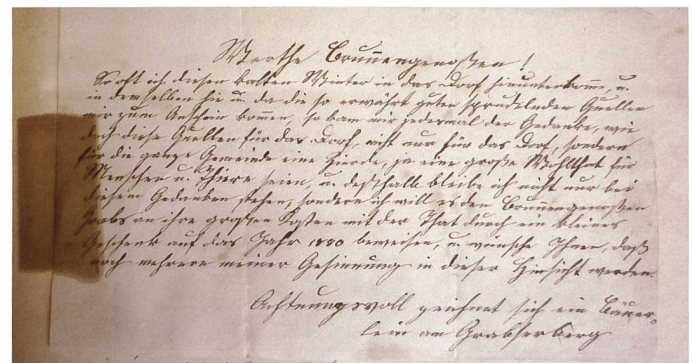 Werthe Brunnengenossen!
So oft ich diesen kalten Winter in das Dorf hinunterkomme, u.
in demselben hie u. da die so erwährt guten sprudelnden Quellen
mir zum Anschein kommen, so kam mir jedesmal der Gedanke, wie
doch diese Quellen für das Dorf, nicht nur für das Dorf, sondern
für die ganze Gemeinde eine Zierde, ja eine große Wohlthat für
Menschen u. Thiere seien, u. deßhalb bleibe ich nicht nur bei
diesem Gedanken stehen, sondern ich will es den Brunnengenossen
Grabs an ihre großen Kosten mit der That durch ein kleines
Geschenk auf das Jahr 1880 beweisen, u. wünsche Ihnen, daß
noch mehrere meiner Gesinnung in dieser Hinsicht werden.
Achtungsvoll zeichnet sich ein Bäuer-
lein am Grabserberg